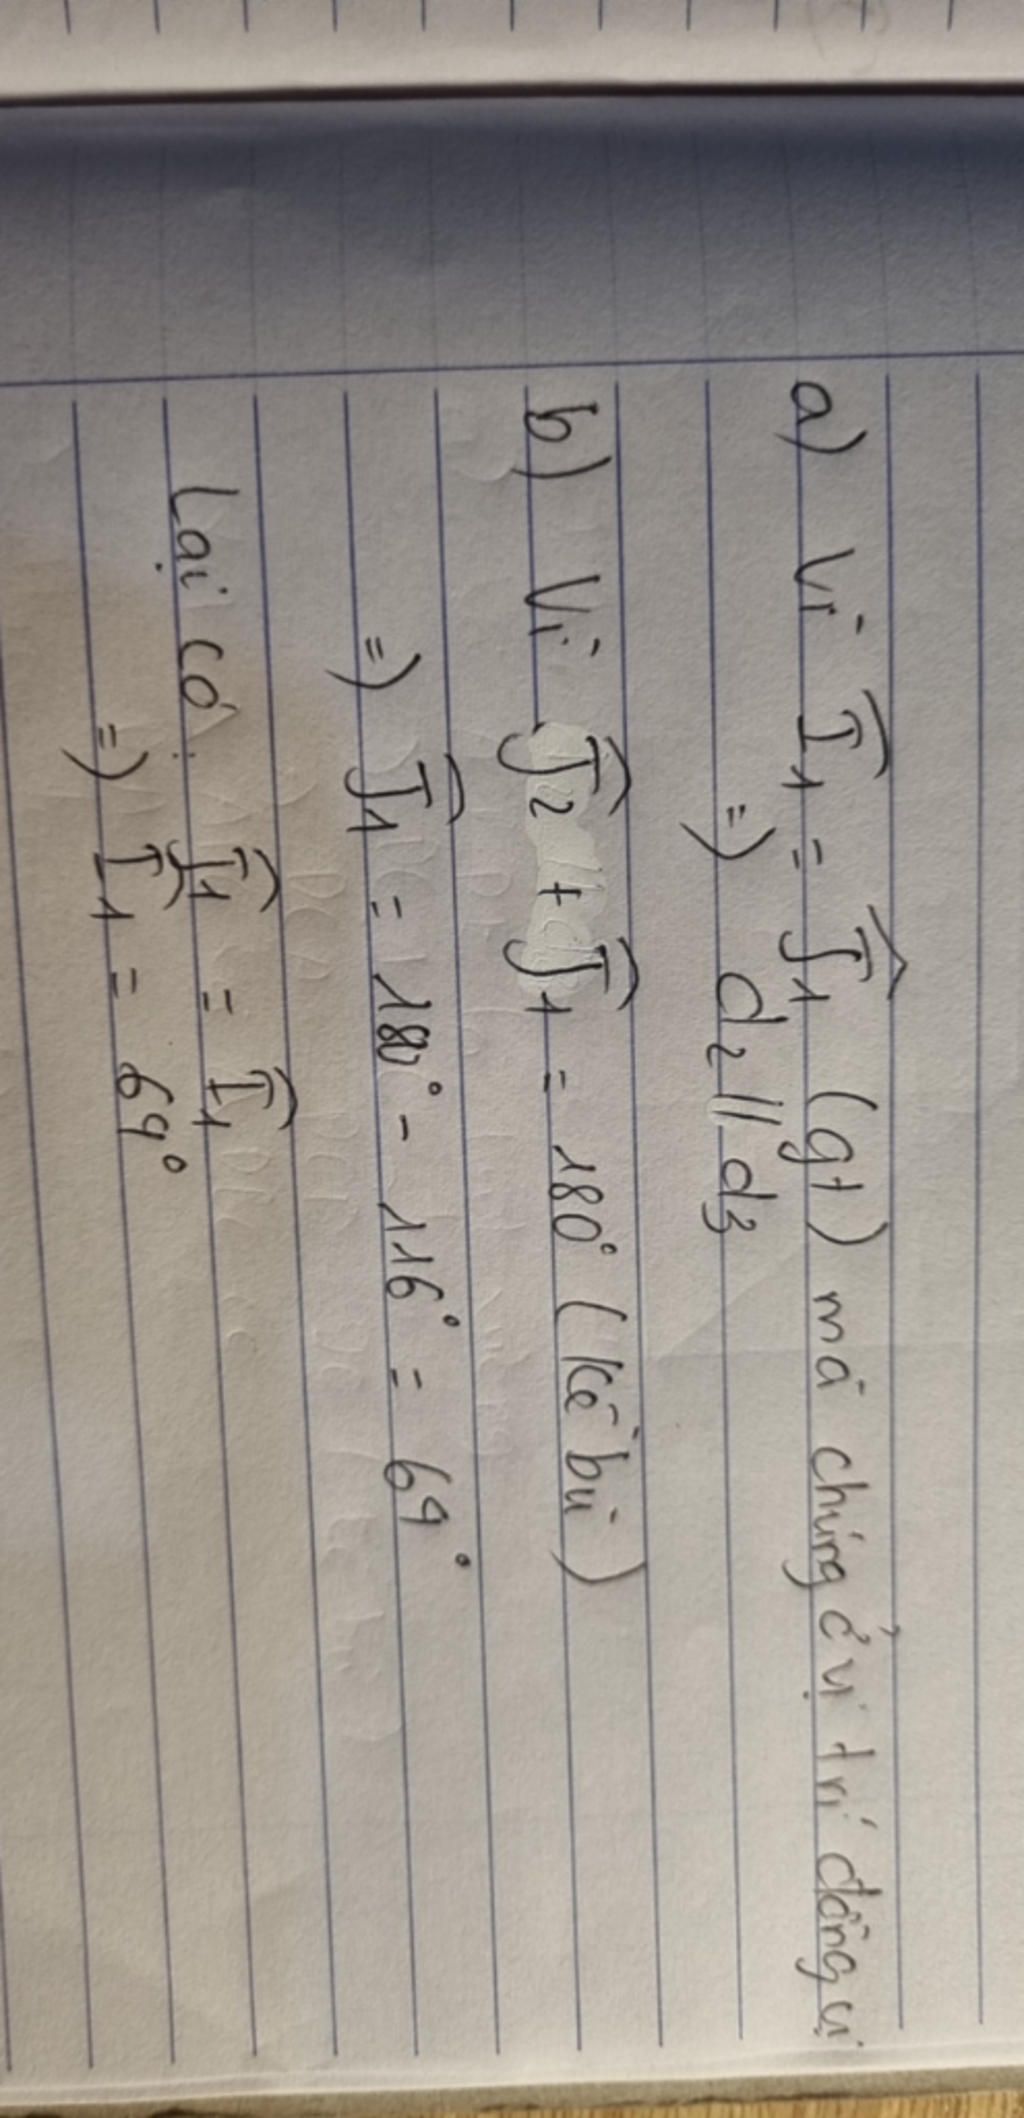 a) Vì Î₁ = Ĵ₁ (gt) mà chúng ở vị trí đồng vị
=) d₂ // d₃
b) Vì Ĵ₂ + Ĵ₁ = 180° (kề bù)
=) Ĵ₁ = 180° - 116° = 64°
Lại có: Ĵ₁ = Î₁
=) Î₁ = 64°